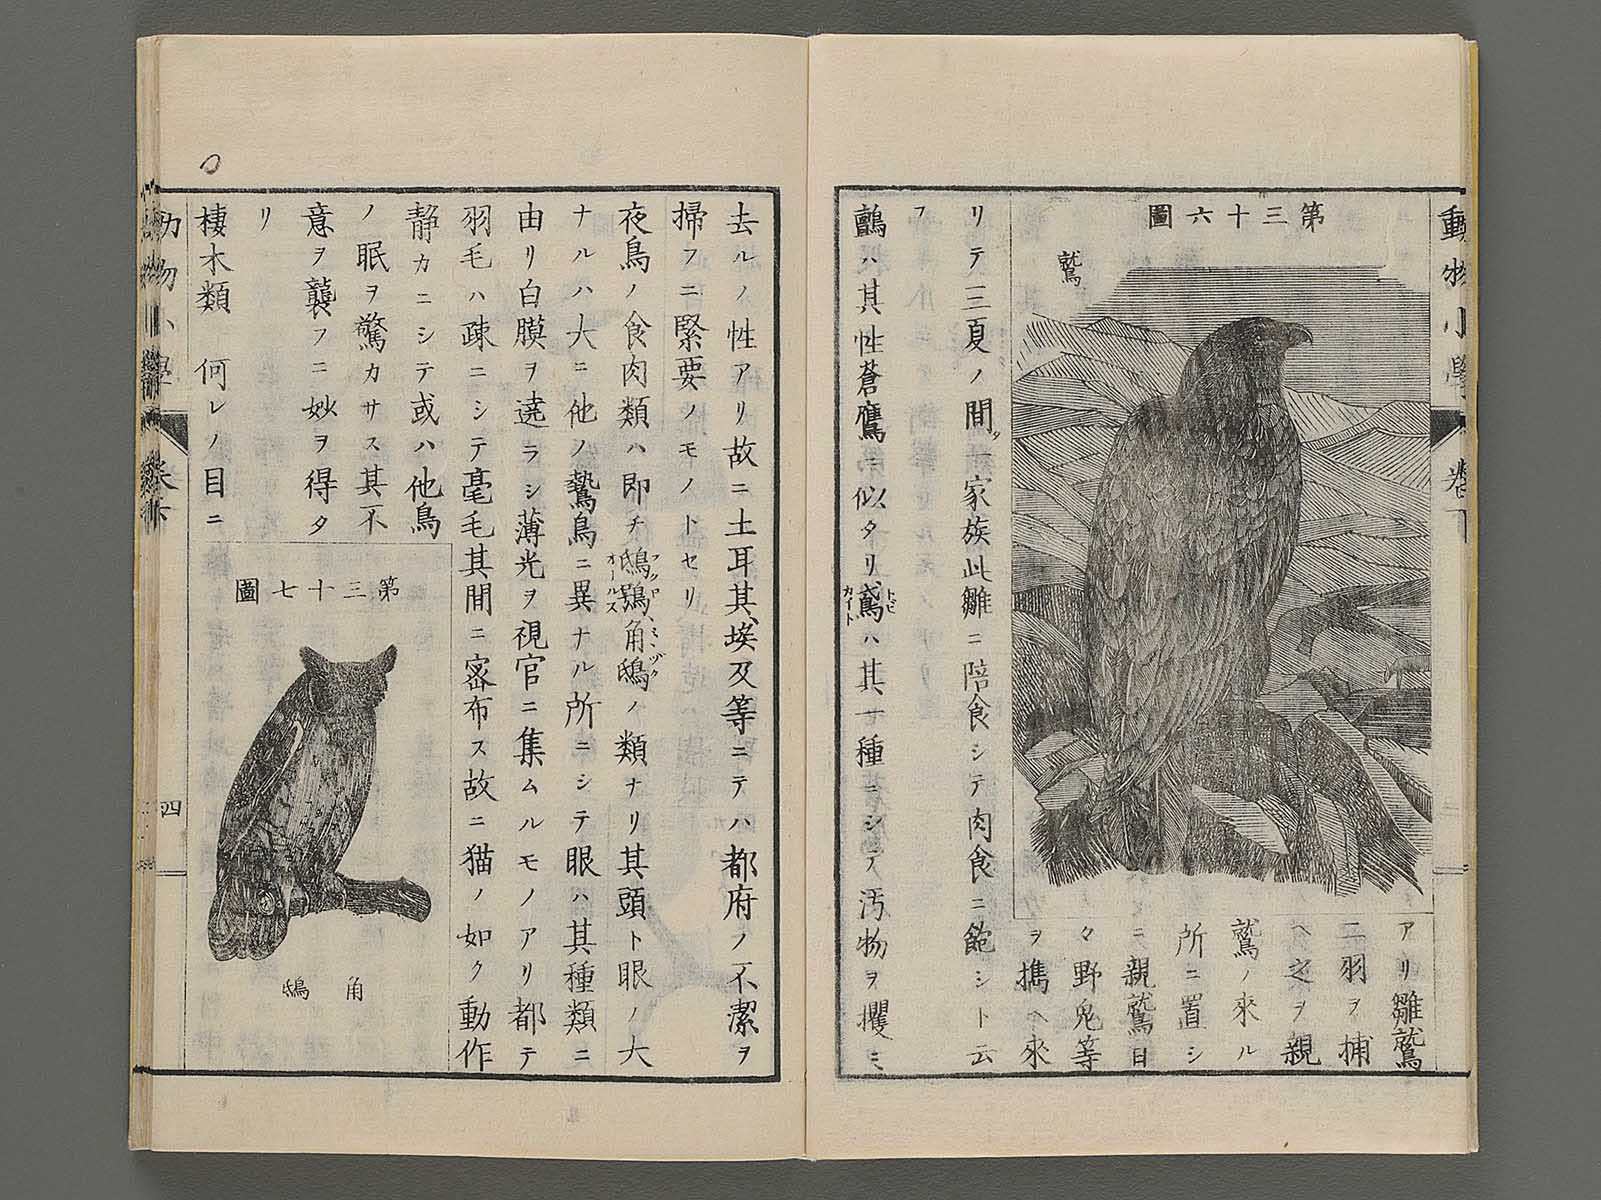 動物小學 卷下
第三十六圖
鷲
アリ雛鷲
二羽ヲ捕
ヘ之ヲ親
鷲ノ來ル
所ニ置シ
ニ親鷲日
々野兎等
ヲ携ヘ來
リテ三夏ノ間タ一家族此雛ニ陪食シテ肉食ニ飽シト云
フ
鸇ハ其性蒼鷹ニ似タリ鳶ハ其一種ニシテ汚物ヲ攫ミ
トビ
カイト
去ルノ性アリ故ニ土耳其埃及等ニテハ都府ノ不潔ヲ
掃フニ緊要ノモノトセリ
夜鳥ノ食肉類ハ即チ鴟鴞角鴟ノ類ナリ其頭ト眼ノ大
フクロミヽヅク
オールス
ナルハ大ニ他ノ鷙鳥ニ異ナル所ニシテ眼ハ其種類ニ
由リ白膜ヲ遶ラシ薄光ヲ視官ニ集ムルモノアリ都テ
羽毛ハ疎ニシテ毫毛其間ニ密布ス故ニ猫ノ如ク動作
靜カニシテ或ハ他鳥
ノ眠ヲ驚カサス其不
意ヲ襲フニ妙ヲ得タ
リ
棲木類 何レノ目ニ
第三十七圖
角鴟
四